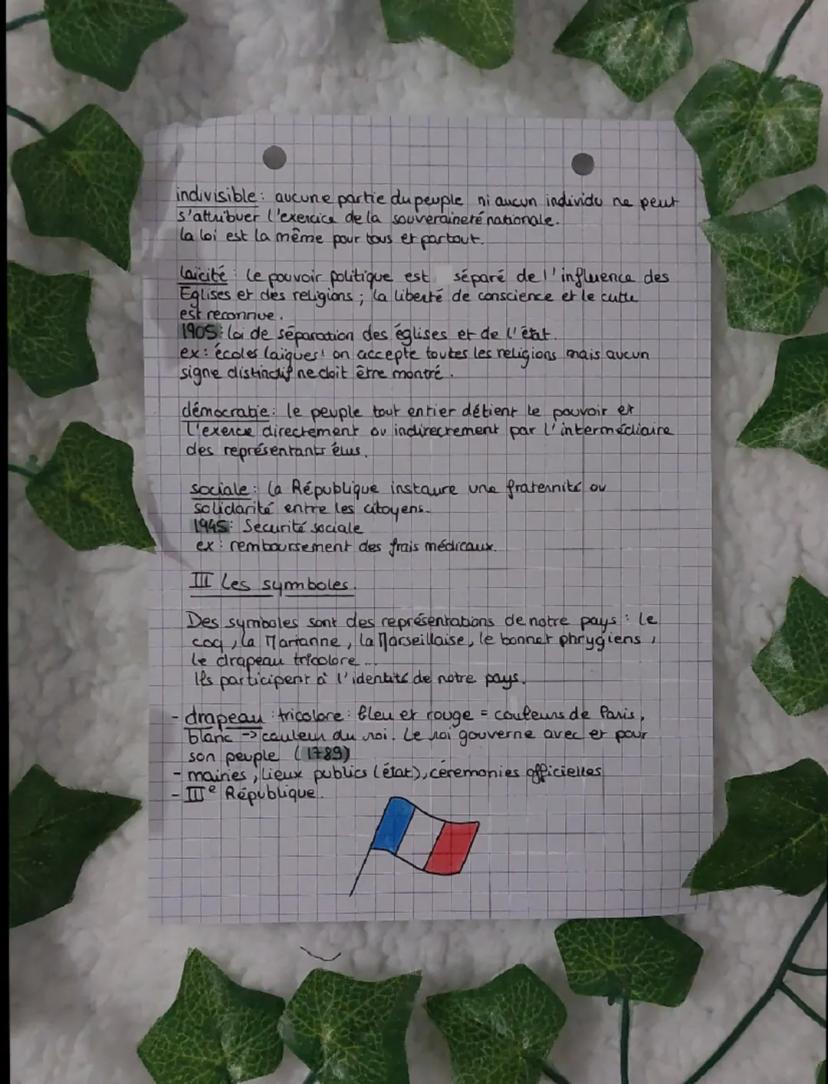 indivisible : aucune partie du peuple ni aucun individu ne peut
s'attribuer l'exercice de la souveraineté nationale.
la loi est la même pour tous et partout.
laïcité : le pouvoir politique est séparé de l'influence des
Eglises et des religions ; la liberté de conscience et le culte
est reconnue.
1905 : loi de séparation des églises et de l'état.
ex : écoles laïques : on accepte toutes les religions mais aucun
signe distinctif ne doit être montré.
démocratie : le peuple tout entier détient le pouvoir et
l'exerce directement ou indirectement par l'intermédiaire
des représentants élus.
sociale : la République instaure une fraternité ou
solidarité entre les citoyens.
1945 : Sécurité sociale
ex : remboursement des frais médicaux.
III Les symboles.
Des symboles sont des représentations de notre pays : le
coq, la Marianne, la Marseillaise, le bonnet phrygiens,
le drapeau tricolore...
Ils participent à l'identité de notre pays.
- drapeau : tricolore : bleu et rouge = couleurs de Paris,
blanc -> couleur du roi. Le roi gouverne avec et pour
son peuple (1789)
- mairies, lieux publics (état), cérémonies officielles
- IIIe République.